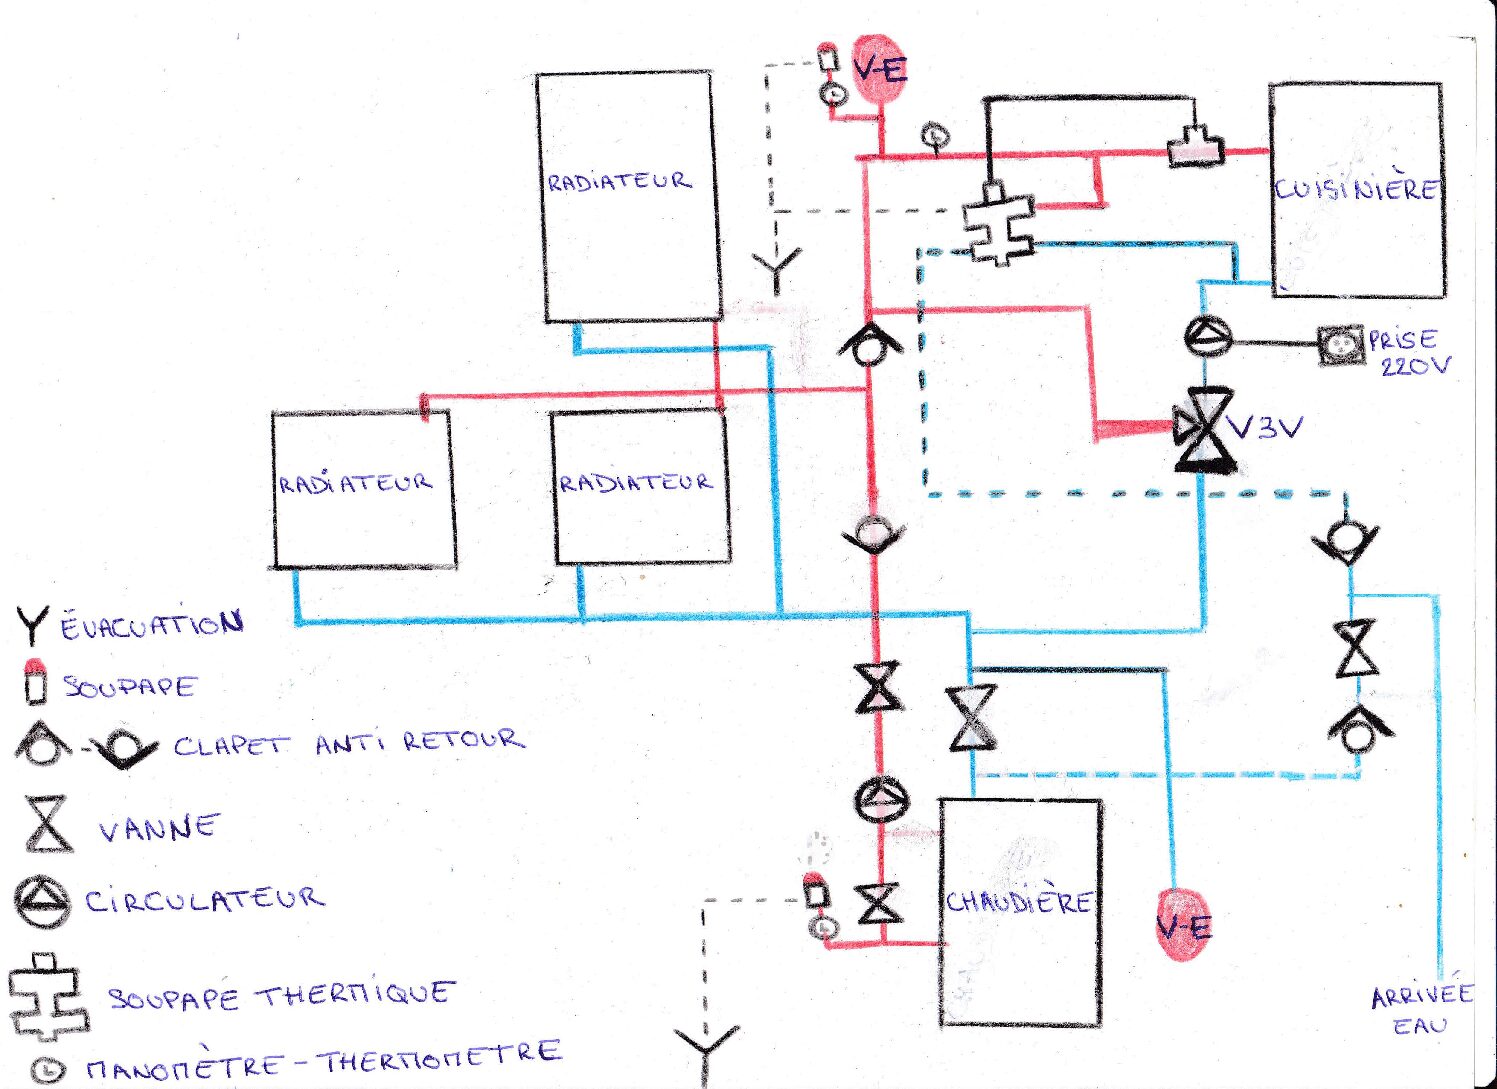 V-E
RADIATEUR
CUISINIÈRE
PRISE
220V
V3V
RADIATEUR
RADIATEUR
ÉVACUATION
SOUPAPE
- CLAPET ANTI RETOUR
VANNE
CIRCULATEUR
CHAUDIÈRE
V-E
SOUPAPE THERMIQUE
ARRIVÉE
EAU
MANOMÈTRE - THERMOMETRE